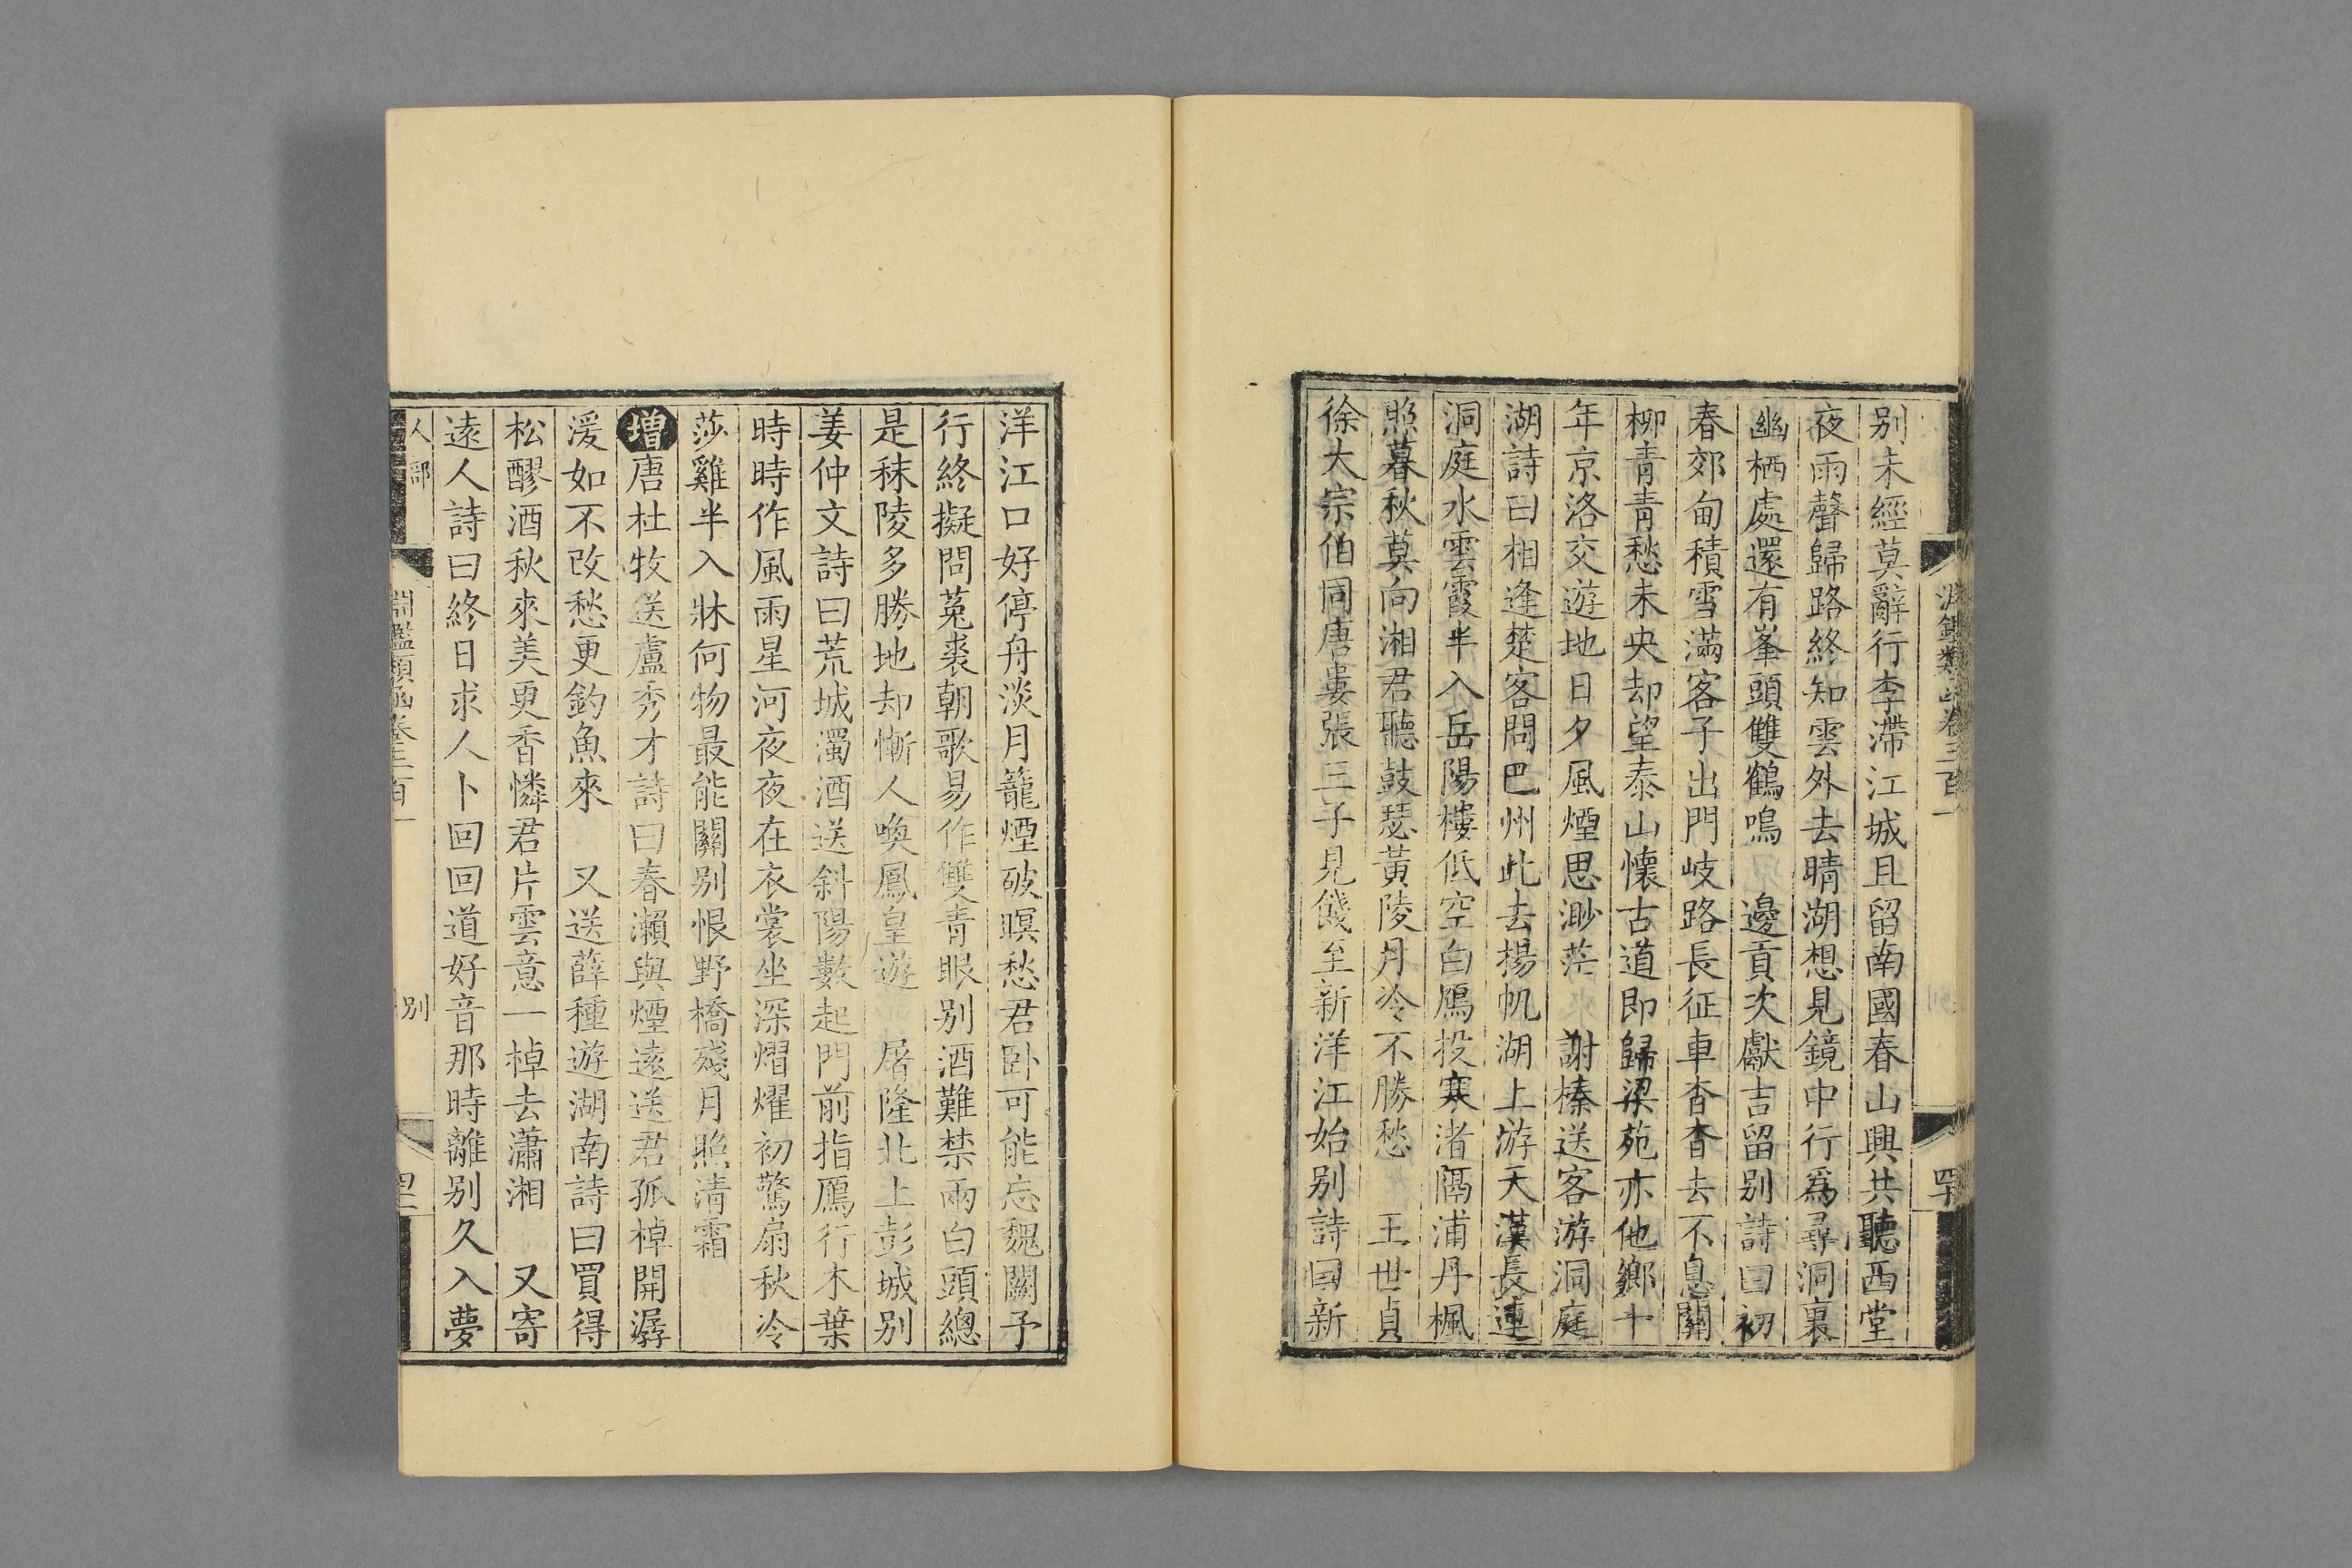 淵鑑類函卷三百一
四十
别未經莫辭行李滯江城且留南國春山興共聽西堂
夜雨聲歸路終知雲外去晴湖想見鏡中行爲尋洞裏
幽栖處還有峯頭雙鶴鳴 邊貢次獻吉留别詩曰初
春郊甸積雪滿客子出門岐路長征車杳杳去不息關
柳青青愁未央却望泰山懷古道即歸梁苑亦他鄉十
年京洛交遊地日夕風煙思渺茫 謝榛送客游洞庭
湖詩曰相逢楚客問巴州此去揚帆湖上游天漢長連
洞庭水雲霞半入岳陽樓低空白鴈投寒渚隔浦丹楓
照暮秋莫向湘君聽鼓瑟黃陵月冷不勝愁 王世貞
徐大宗伯同唐婁張三子見餞至新洋江始别詩曰新
洋江口好停舟淡月籠煙破暝愁君卧可能忘魏闕予
行終擬問菟裘朝歌易作雙青眼别酒難禁兩白頭總
是秣陵多勝地却慚人喚鳳皇遊 屠隆北上彭城别
姜仲文詩曰荒城濁酒送斜陽數起門前指鴈行木葉
時時作風雨星河夜夜在衣裳坐深熠燿初驚扇秋冷
莎雞半入牀何物最能關别恨野橋殘月照清霜
增唐杜牧送盧秀才詩曰春瀨與煙遠送君孤棹開潺
湲如不改愁更釣魚來 又送薛種遊湖南詩曰買得
松醪酒秋來美更香憐君片雲意一棹去瀟湘 又寄
遠人詩曰終日求人卜回回道好音那時離别久入夢
人部
淵鑑類函卷三百一
别